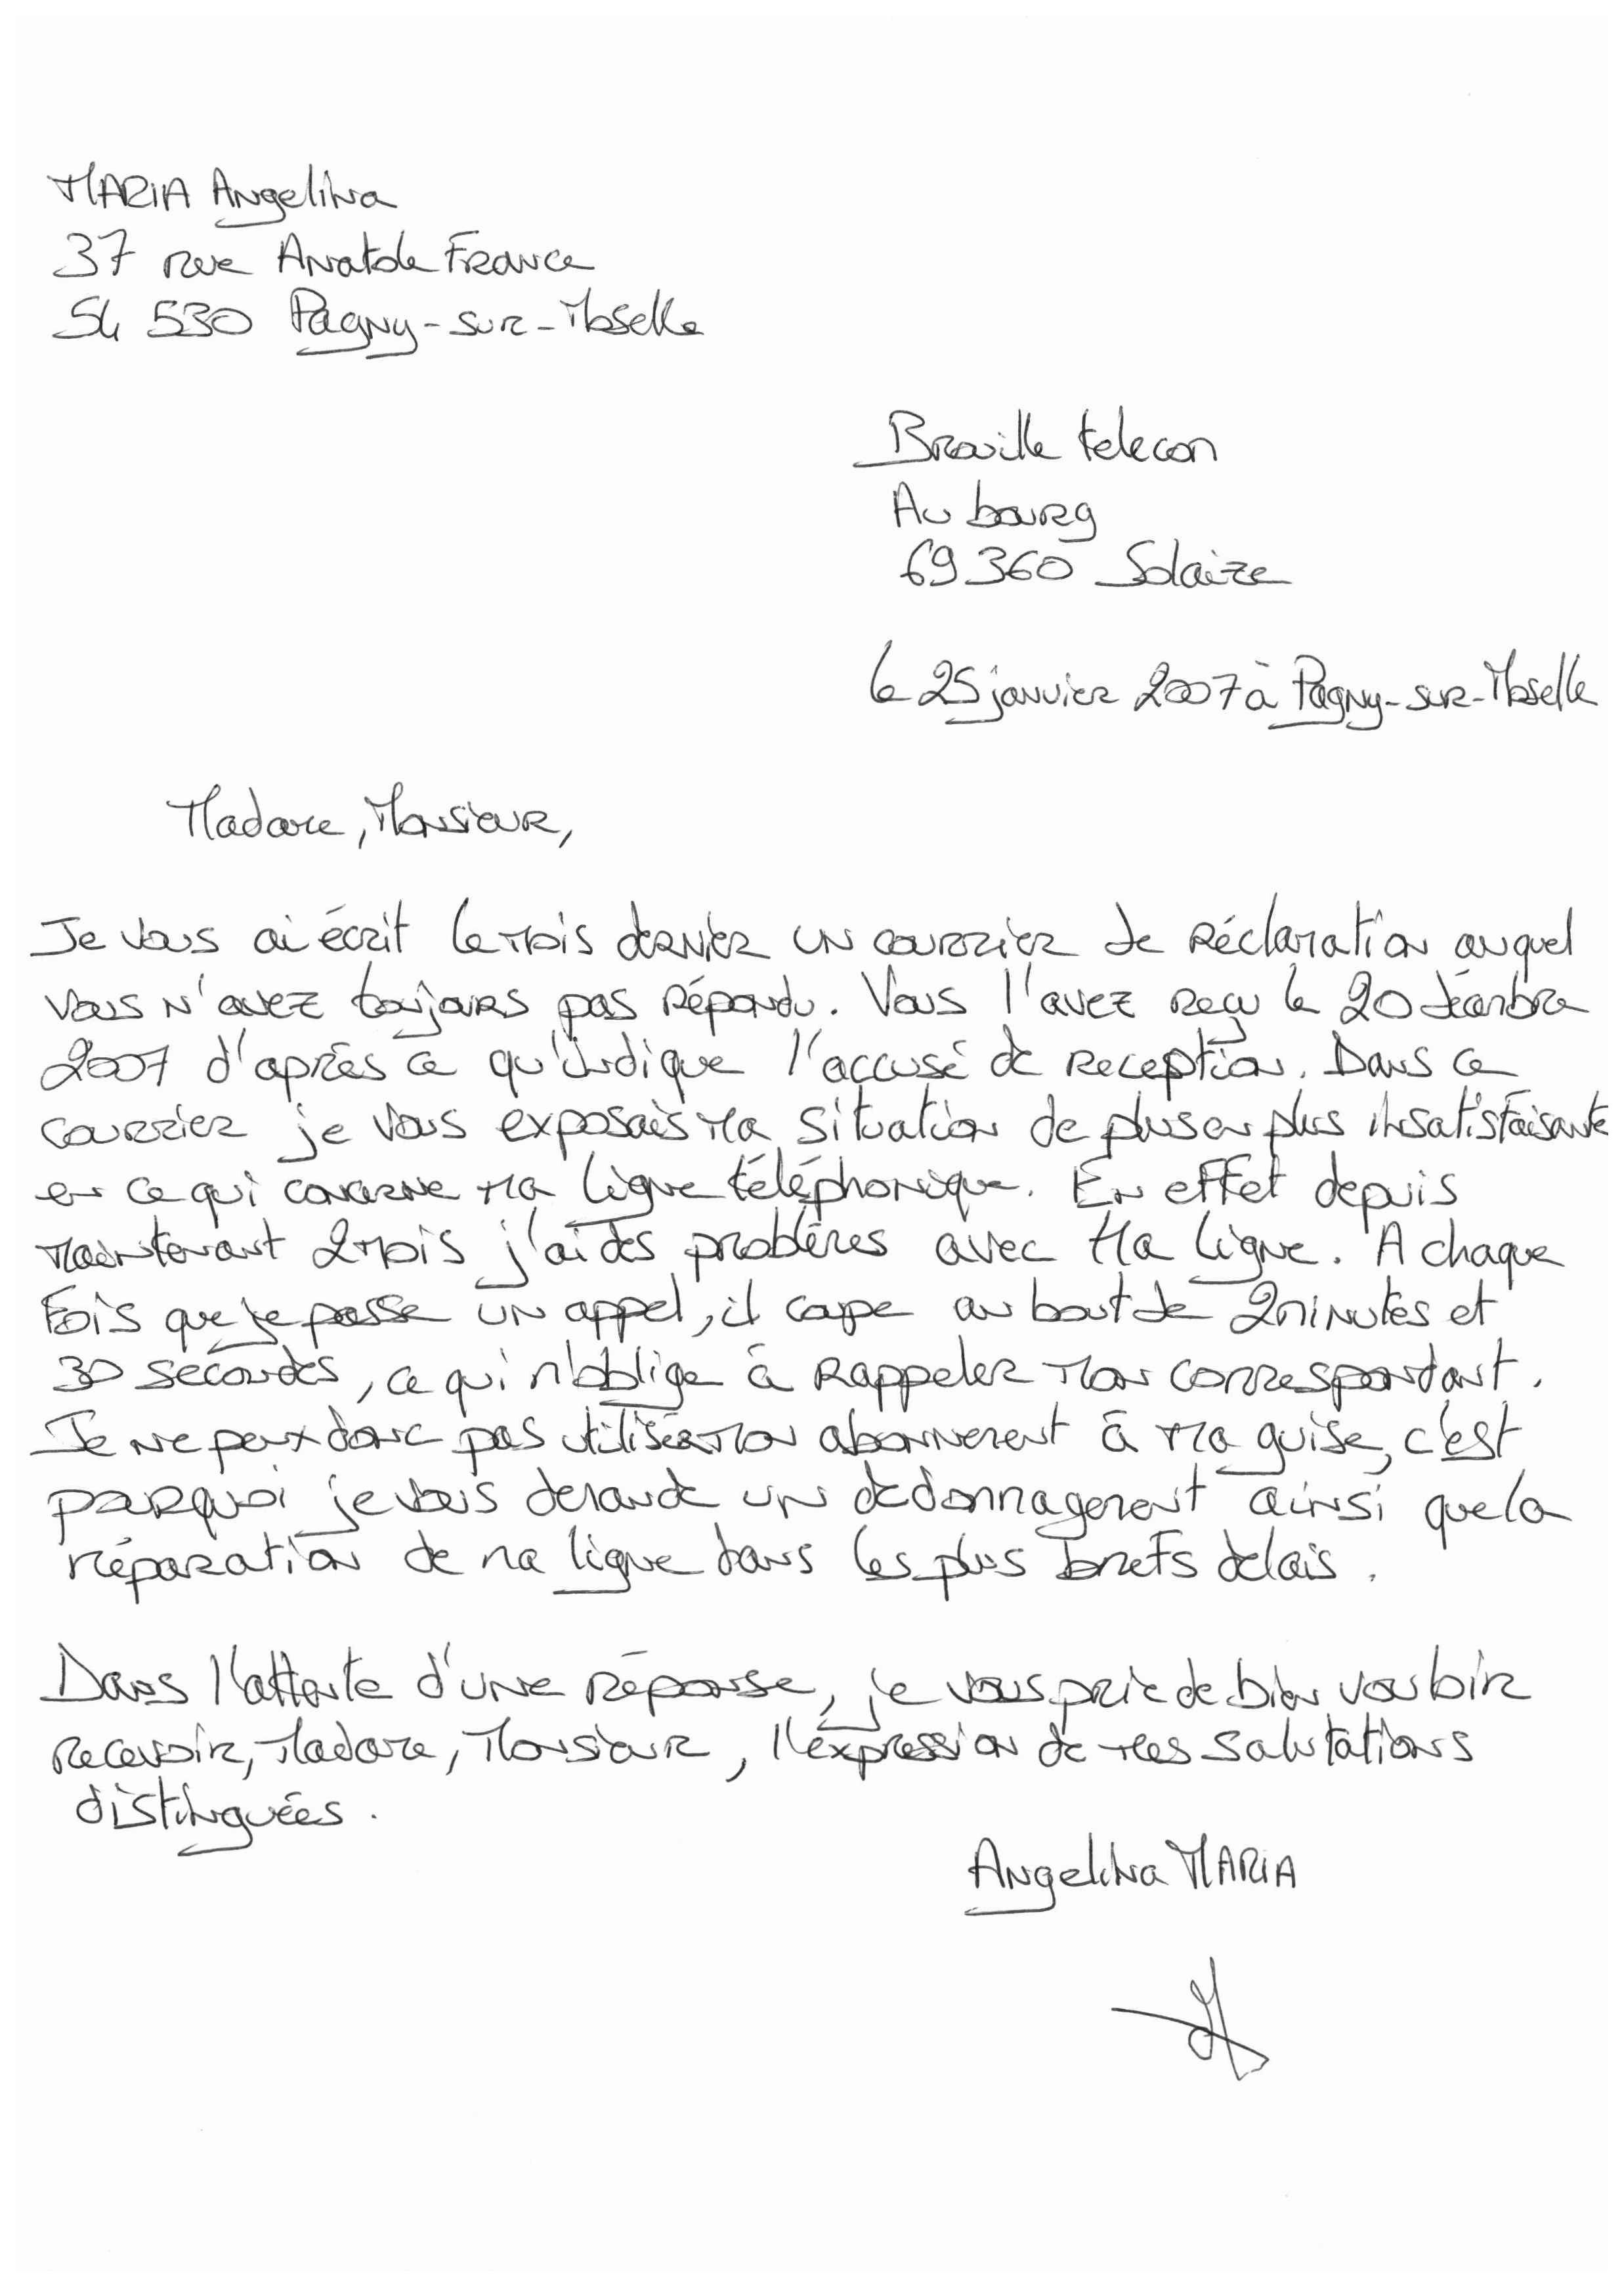 MARIA Angelina
37 rue Anatole France
54 530 Pagny-sur-Moselle
Braville telecom
Au bourg
69 360 Solaize
le 25 janvier 2007 à Pagny-sur-Moselle
Madame, Monsieur,
Je vous ai écrit le mois dernier un courrier de réclamation auquel
vous n'avez toujours pas répondu. Vous l'avez reçu le 20 décembre
2007 d'après ce qu'indique l'accusé de reception. Dans ce
courrier je vous exposais ma situation de plus en plus insatisfaisante
en ce qui concerne ma ligne téléphonique. En effet depuis
maintenant 2 mois j'ai des problèmes avec ma ligne. A chaque
fois que je passe un appel, il coupe au bout de 2 minutes et
30 secondes, ce qui m'oblige à rappeler mon correspondant.
Je ne peux donc pas utiliser mon abonnement à ma guise, c'est
pourquoi je vous demande un dedommagement ainsi que la
réparation de ma ligne dans les plus brefs delais.
Dans l'attente d'une réponse, je vous prie de bien vouloir
recevoir, Madame, Monsieur, l'expression de mes salutations
distinguées.
Angelina MARIA